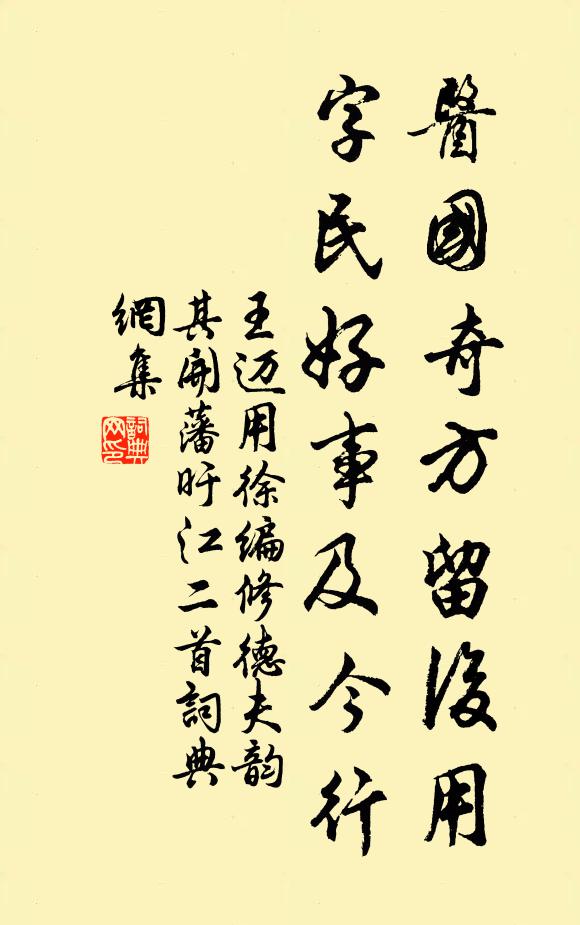 醫國奇方留後用
字民好事及今行
王迈用徐編修德夫韵
其開藩盱江二首詞典
網集
詞典
网印